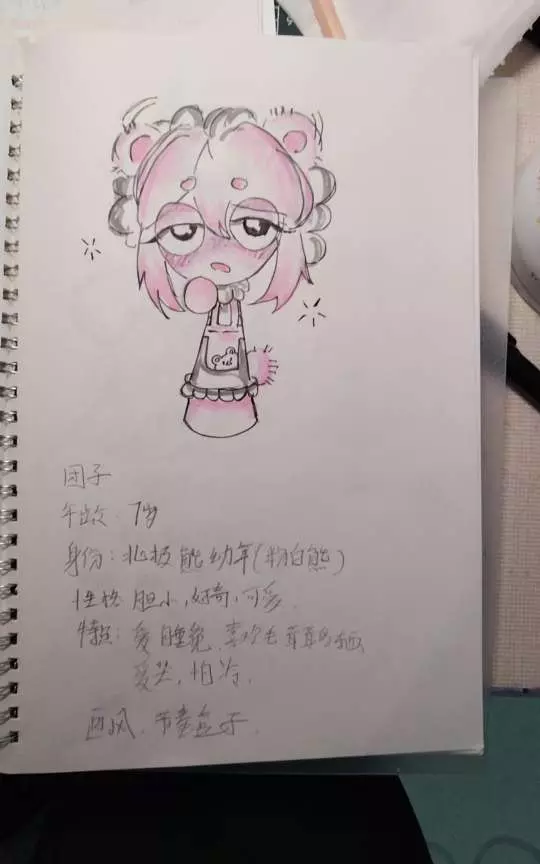 团子
年龄：7岁
身份：北极熊幼年（粉白熊）
性格 胆小，好奇，可爱.
特点：爱睡觉，喜欢毛茸茸的东西
爱哭，怕冷.
画风，节奏盒子.